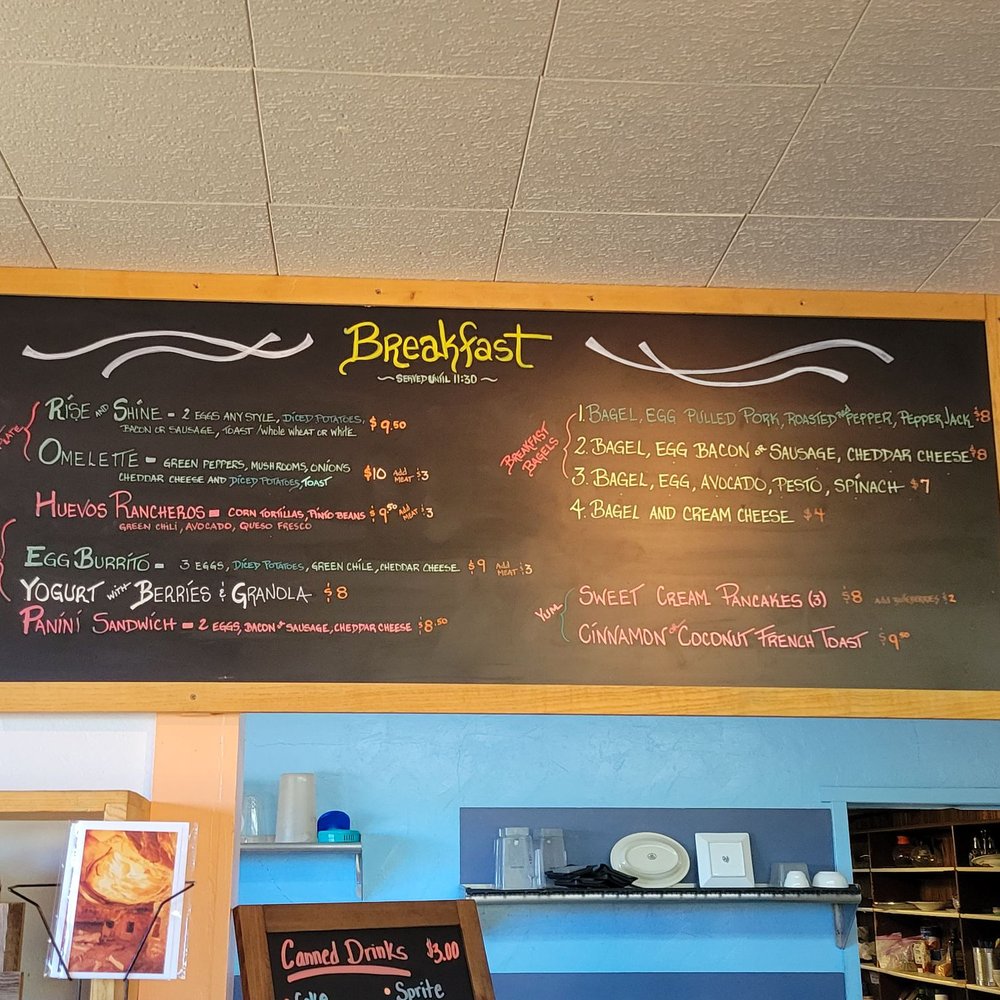 Breakfast
~ SERVED UNTIL 11:30 ~
RISE AND SHINE - 2 EGGS ANY STYLE, DICED POTATOES,
BACON OR SAUSAGE, TOAST /whole wheat or white $9.50
OMELETTE - GREEN PEPPERS, MUSHROOMS, ONIONS
CHEDDAR CHEESE AND DICED POTATOES, TOAST $10 Add MEAT $3
HUEVOS RANCHEROS = CORN TORTILLAS, PINTO BEANS $9.50 Add MEAT $3
GREEN CHILI, AVOCADO, QUESO FRESCO
EGG BURRITO - 3 EGGS, DICED POTATOES, GREEN CHILE, CHEDDAR CHEESE $9 Add MEAT $3
YOGURT with BERRIES & GRANOLA $8
PANINI SANDWICH = 2 EGGS, BACON or SAUSAGE, CHEDDAR CHEESE $8.50
BREAKFAST
BAGELS
1. BAGEL, EGG PULLED PORK, ROASTED RED PEPPER, PEPPER JACK $8
2. BAGEL, EGG BACON or SAUSAGE, CHEDDAR CHEESE $8
3. BAGEL, EGG, AVOCADO, PESTO, SPINACH $7
4. BAGEL AND CREAM CHEESE $4
YUM
SWEET CREAM PANCAKES (3) $8 ADD BLUEBERRIES $2
CINNAMON or COCONUT FRENCH TOAST $9.50
Canned Drinks $3.00
• Coke • Sprite